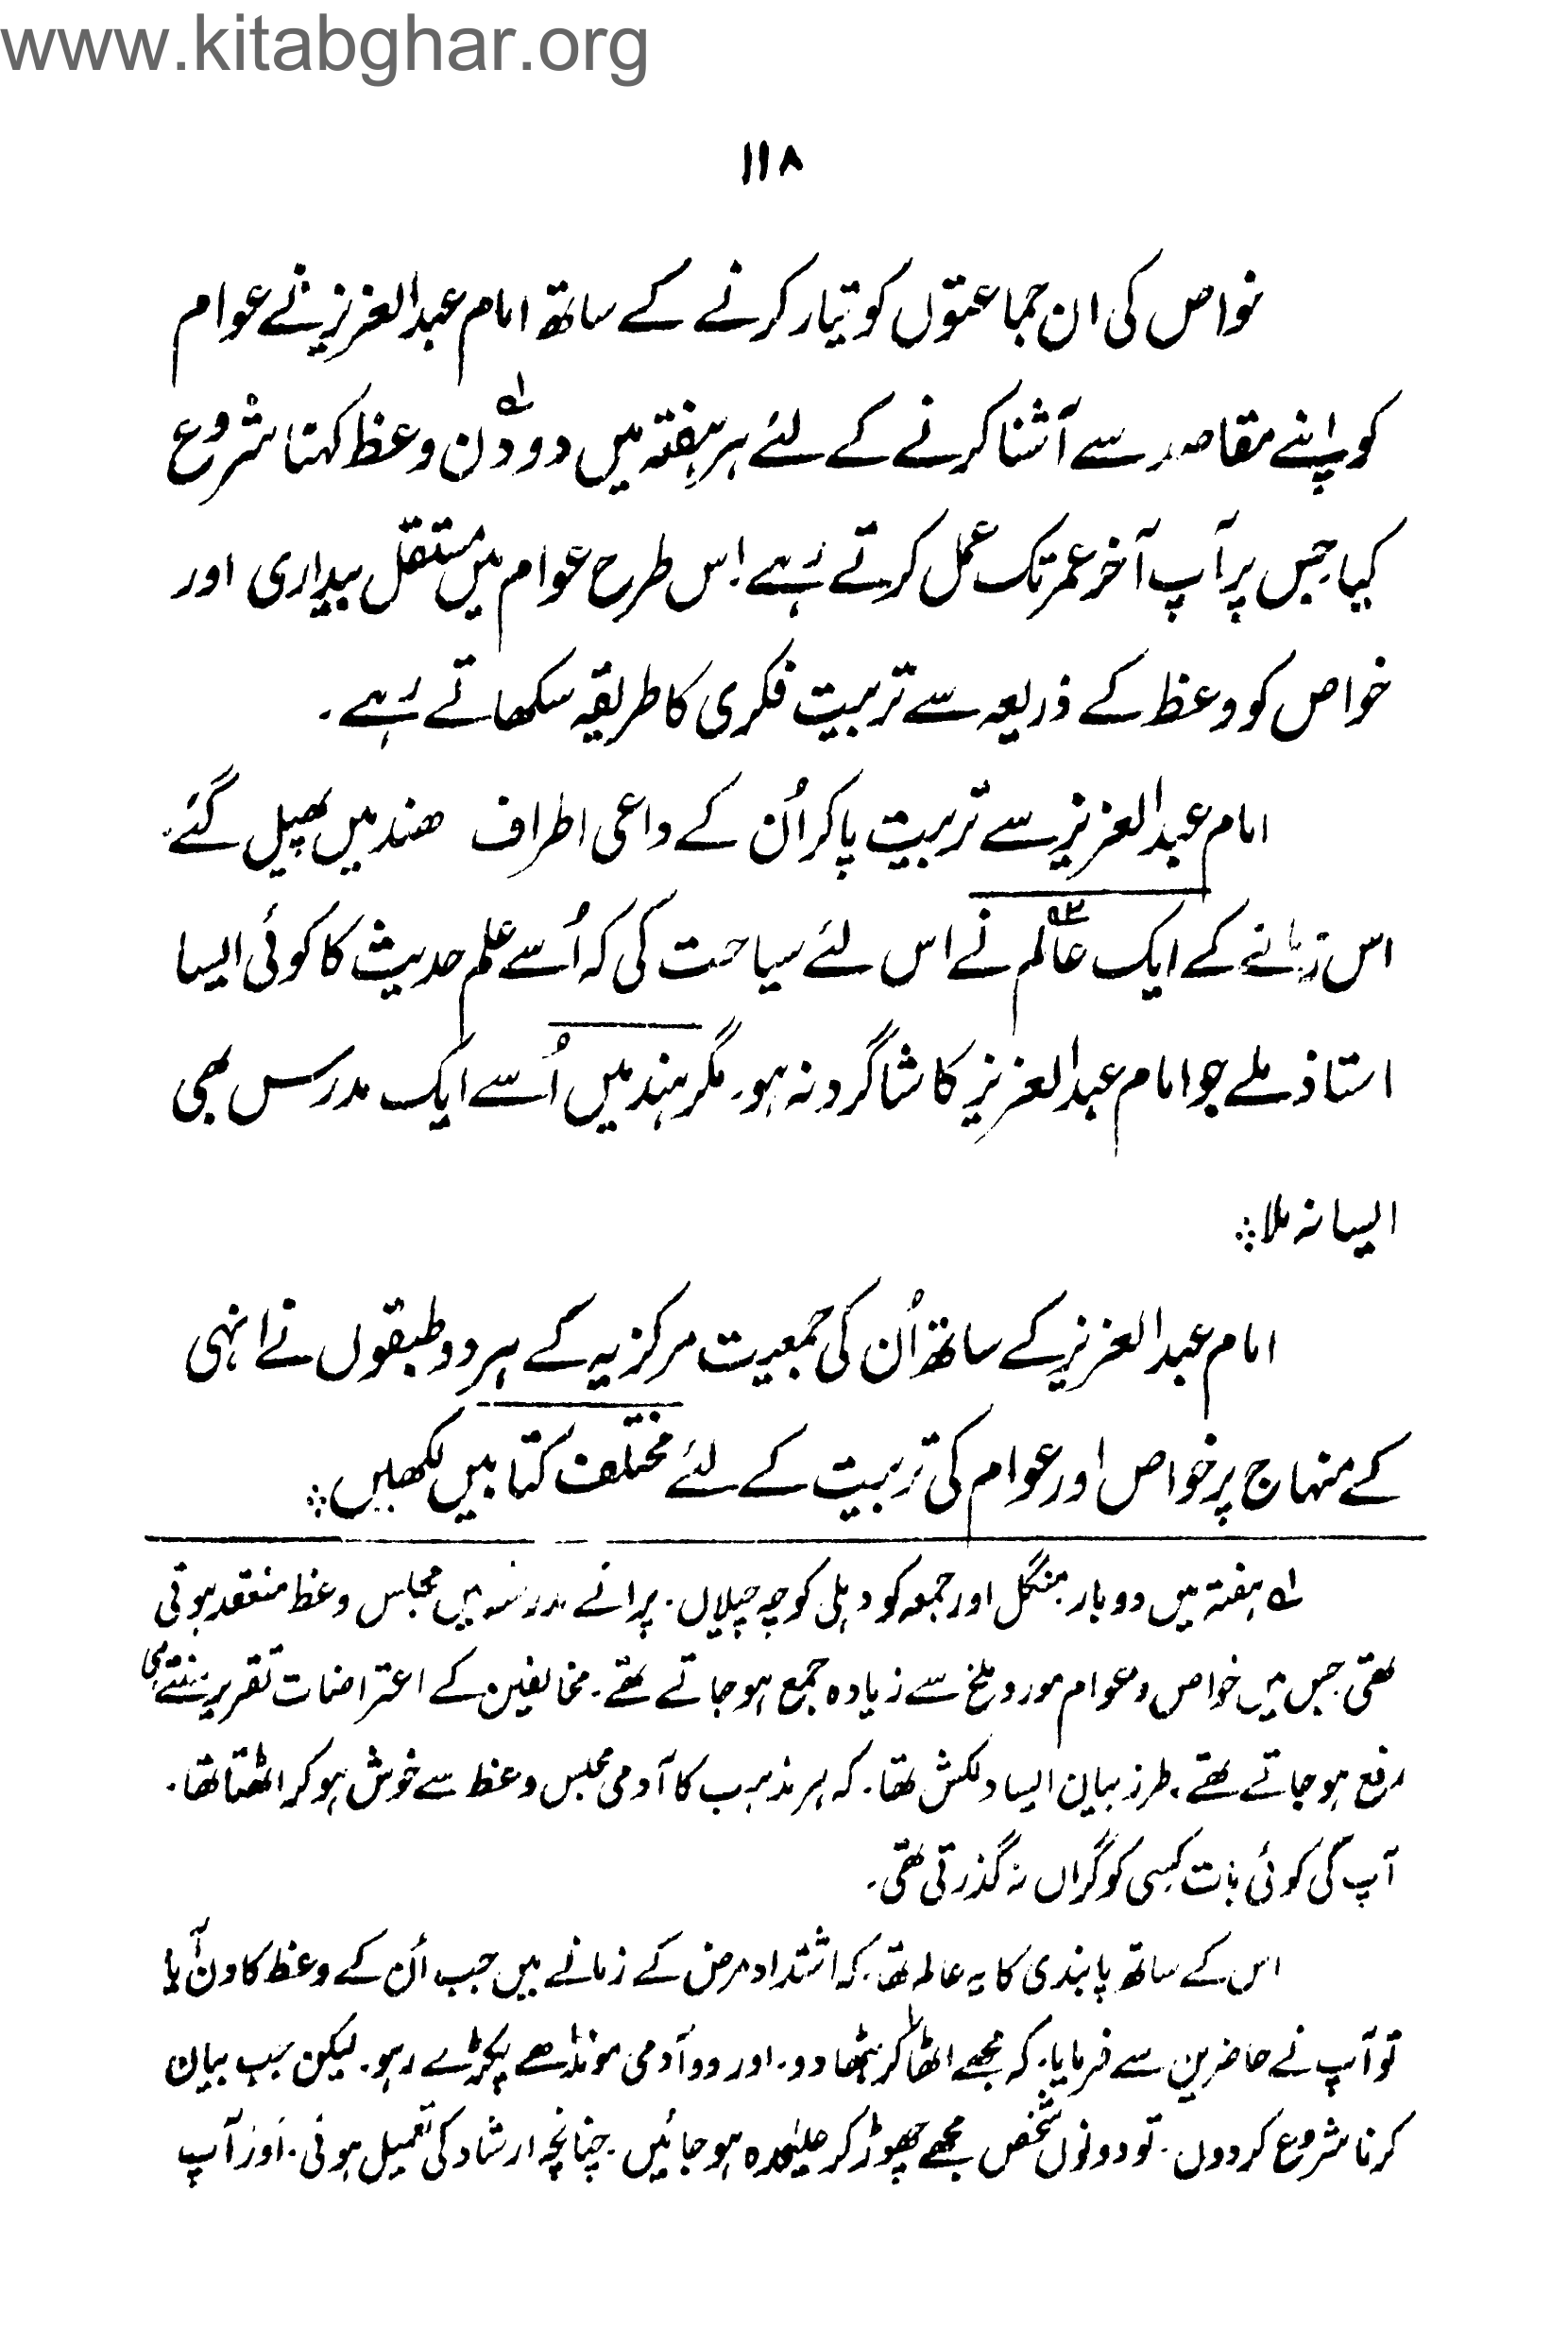 www.kitabghar.org
۱۱۸
خواص کی ان جماعتوں کو تیار کرنے کے ساتھ امام عبدالعزیز نے عوام
کو اپنے مقاصد سے آشنا کرنے کے لئے ہر ہفتہ میں دو دن ؎۱ وعظ کہنا شروع
کیا جس پر آپ آخر عمر تک عمل کرتے رہے۔ اس طرح عوام میں مستقل بیداری اور
خواص کو وعظ کے ذریعہ سے تربیت فکری کا طریقہ سکھاتے رہے۔
امام عبدالعزیز سے تربیت پاکر اُن کے داعی اطراف ھند میں پھیل گئے۔
اس زمانے کے ایک عالم ؎۹۳ نے اس لئے سیاحت کی کہ اُسے علم حدیث کا کوئی ایسا
استاذ ملے جو امام عبدالعزیز کا شاگرد نہ ہو۔ مگر ہند میں اُسے ایک مدرس بھی
ایسا نہ ملا ؞
امام عبدالعزیز کے ساتھ اُن کی جمعیت مرکزیہ کے ہر دو طبقوں نے انہی
کے منہاج پر خواص اور عوام کی تربیت کے لئے مختلف کتابیں لکھیں ؞
؎۱ ہفتہ میں دو بار منگل اور جمعہ کو دہلی کوچہ چیلاں۔ پرانے مدرسہ میں مجلس وعظ منعقد ہوتی
تھی جس میں خواص و عوام مور و ملخ سے زیادہ جمع ہو جاتے تھے۔ مخالفین کے اعتراضات تقریر سنتے ہی
رفع ہو جاتے تھے۔ طرز بیان ایسا دلکش تھا۔ کہ ہر مذہب کا آدمی مجلس وعظ سے خوش ہو کر اٹھتا تھا۔
آپ کی کوئی بات کسی کو گراں نہ گذرتی تھی۔
اس کے ساتھ پابندی کا یہ عالم تھا۔ کہ اشتداد مرض کے زمانے میں جب اُن کے وعظ کا دن آیا
تو آپ نے حاضرین سے فرمایا۔ کہ مجھے اٹھا کر بٹھا دو۔ اور دو آدمی مونڈھے پکڑے رہو۔ لیکن جب بیان
کرنا شروع کردوں۔ تو دونوں شخص مجھے چھوڑ کر علیٰحدہ ہو جائیں۔ چنانچہ ارشاد کی تعمیل ہوئی۔ اور آپ